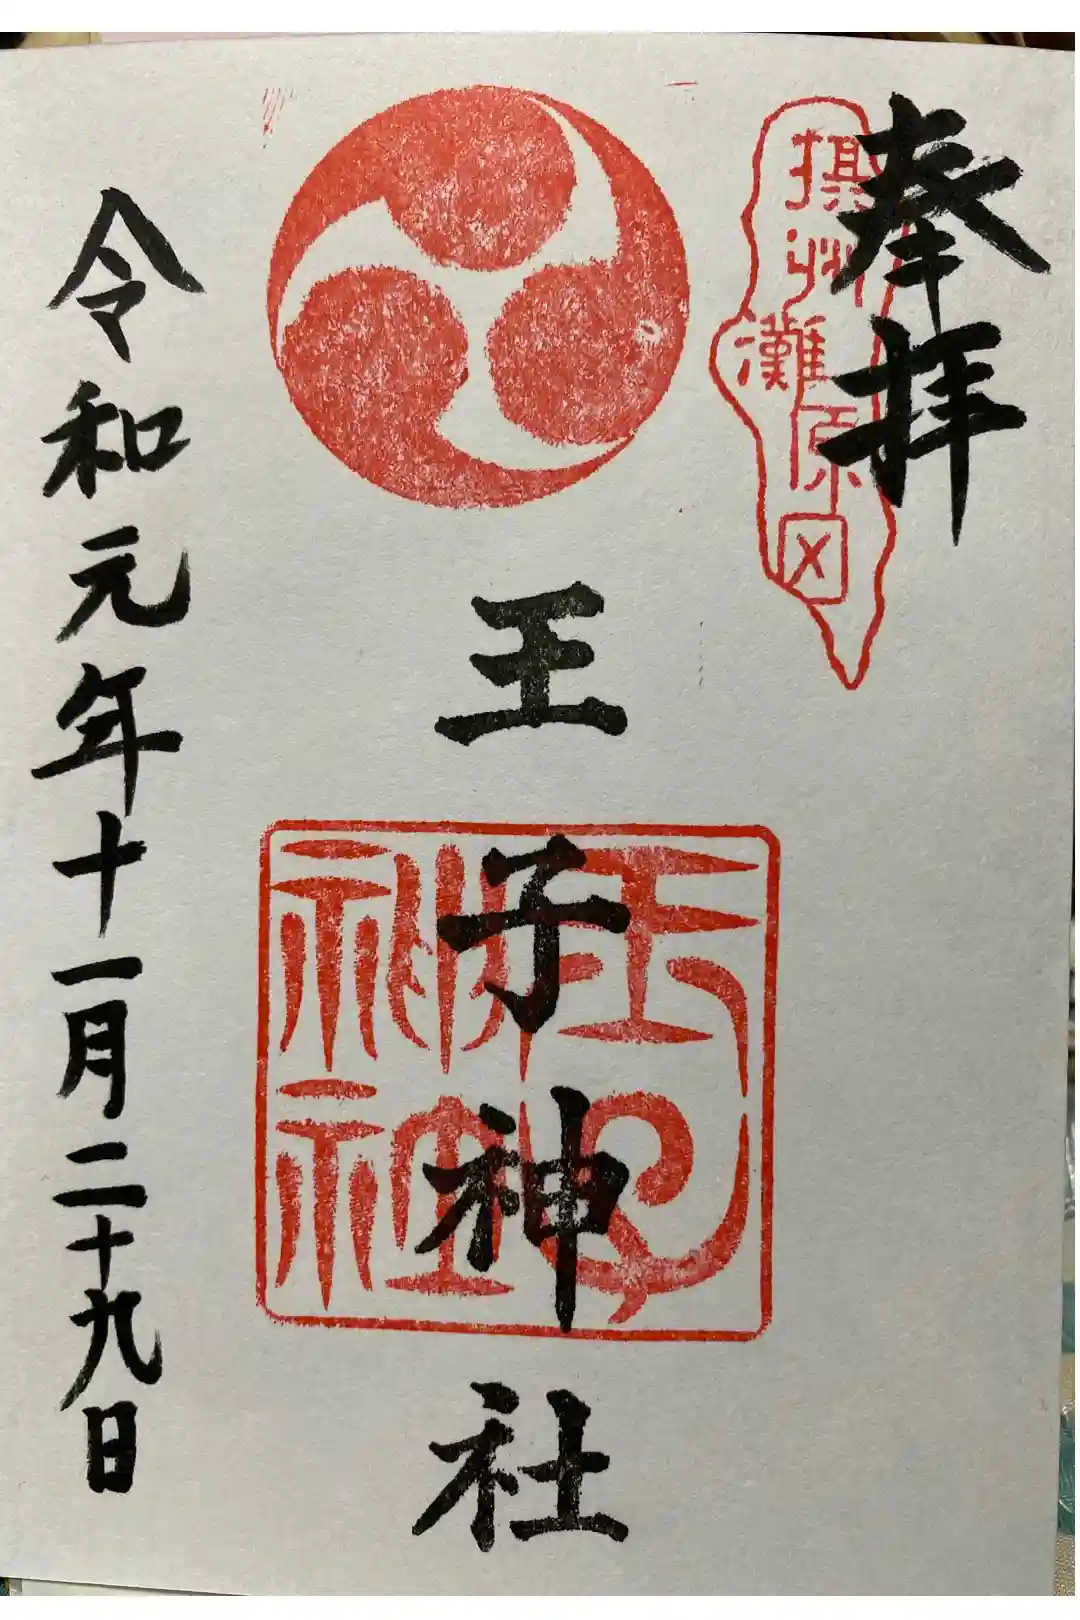 奉拝
摂州灘原田
王子神社
王子神社
令和元年十一月二十九日